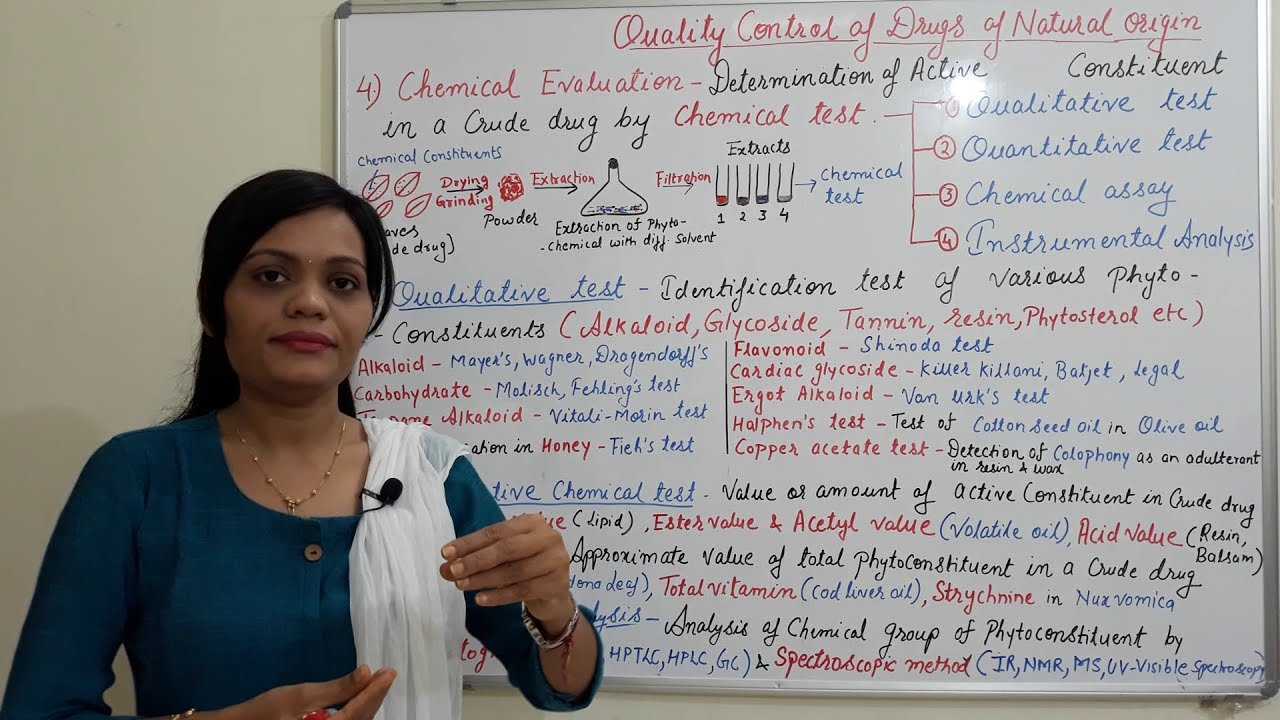 Quality Control of Drugs of Natural origin
4) Chemical Evaluation - Determination of Active Constituent
in a Crude drug by Chemical test.
① Qualitative test
② Quantitative test
③ Chemical assay
④ Instrumental Analysis
Chemical Constituents
Drying
Grinding
Powder
Extraction
Extraction of Phyto-
-chemical with diff. Solvent
Filtration
Extracts
1 2 3 4
Chemical
test
Qualitative test - Identification test of various Phyto-
-Constituents (Alkaloid, Glycoside, Tannin, resin, Phytosterol etc)
Alkaloid - Mayer's, Wagner, Dragendorff's
Carbohydrate - Molisch, Fehling's test
Alkaloid - Vitali-Morin test
in Honey - Fieh's test
Flavonoid - Shinoda test
Cardiac glycoside - Killer killani, Batjet, legal
Ergot Alkaloid - Van Urk's test
Halphen's test - Test of Cotton seed oil in Olive oil
Copper acetate test - Detection of Colophony as an adulterant
in resin & wax
Chemical test - Value or amount of active Constituent in Crude drug
(Lipid), Ester value & Acetyl value (Volatile oil), Acid value (Resin,
Balsam)
Approximate value of total Phytoconstituent in a Crude drug
Total vitamin (Cod liver oil), Strychnine in Nux vomica
- Analysis of Chemical group of Phytoconstituent by
HPTLC, HPLC, GC) & Spectroscopic method (IR, NMR, MS, UV-Visible Spectroscopy)